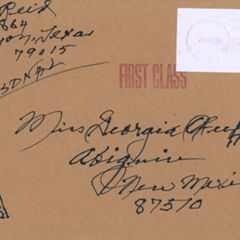 Reid
864
yon, Texas
79015
FIRST CLASS
Miss Georgia O'Keef
Abiquiu
New Mexi
87510